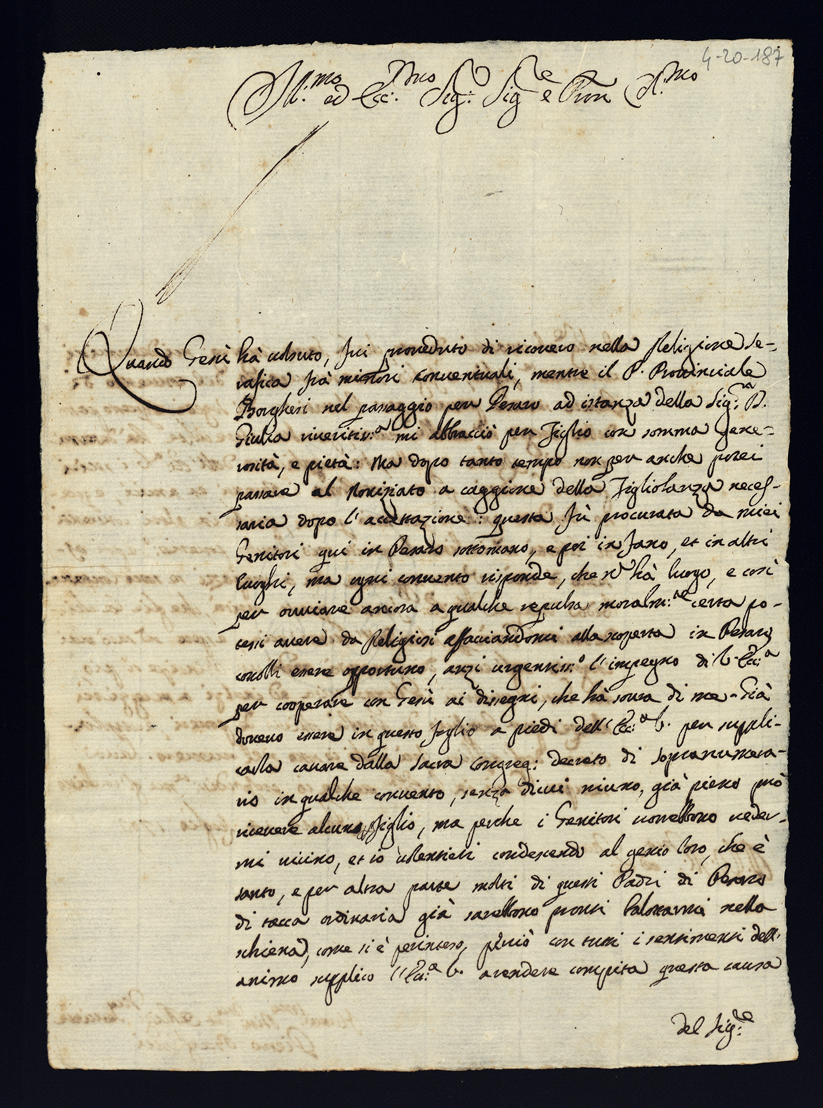 4-20-187
Ill.mo ed Ecc.mo Sig: Sig.e e Pron
Quando Gesù hà voluto, fui proveduto di ricovero nella Religione Se-
rafica frà minori conventuali, mentre il P. Provinciale
Borghesi nel passaggio per Pesaro ad istanza della Sig.ra D.
Giulia mi abbracciò per figlio con somma gene-
rosità, e pietà: Ma dopo tanto tempo non per anche potei
passare al Noviziato a caggione della figliolanza neces-
saria dopo l'accettazione: questa fù procurata da miei
Genitori qui in Pesaro sottomano, e poi in Fano, et in altri
luoghi, ma ogni convento risponde, che hà luogo, e così
per ovviare ancora a qualche repulsa moralm.te certa po-
tessi avere da Religiosi affacciandomi alla scoperta in Pesaro
essere opportuno, anzi urgentiss.o l'impegno di V. Ecc.a
per cooperare con Gesù ai disegni, che hà sovra di me. Già
dovevo essere in questo foglio a piedi dell'Ecc.a V. per suppli-
carla cavare dalla sacra congreg: decreto di sopranumera-
rio in qualche convento, senza di cui niuno, già pieno può
ricevere alcuno figlio, ma perche i Genitori vorrebbono veder-
mi vicino, et io volentieri condescendo al genio loro, che è
santo, e per altra parte molti di questi Padri di Pesaro
di tacca ordinaria già sarebbono pronti nella
schiena, come si è, perciò con tutti i sentimenti dell'
animo supplico l'Ecc.a V. a rendere compita questa causa
del Sig.re